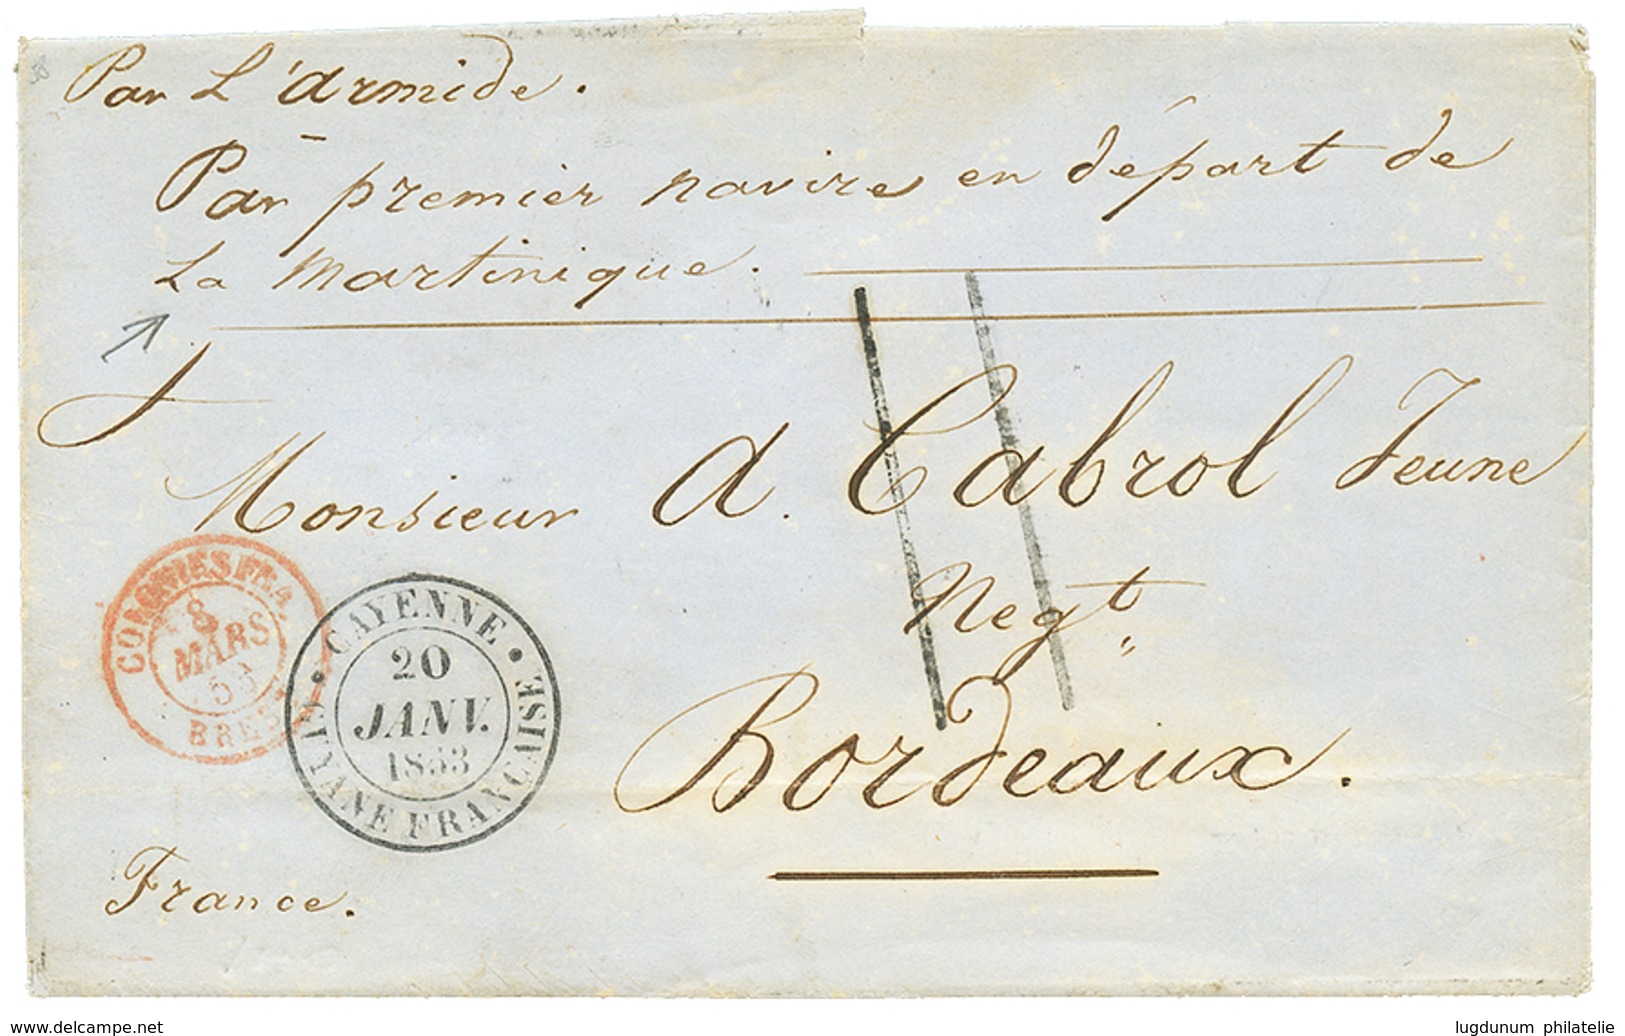 Par L'Armide.
Par premier navire en départ de
La Martinique.
Monsieur A. Cabrol Jeune
Negt
Bordeaux.
France.
COLONIES FRA.
8
MARS
53
BREST
CAYENNE
20
JANV.
1853
GUYANE FRANCAISE
www.delcampe.net
lugdunum philatelie